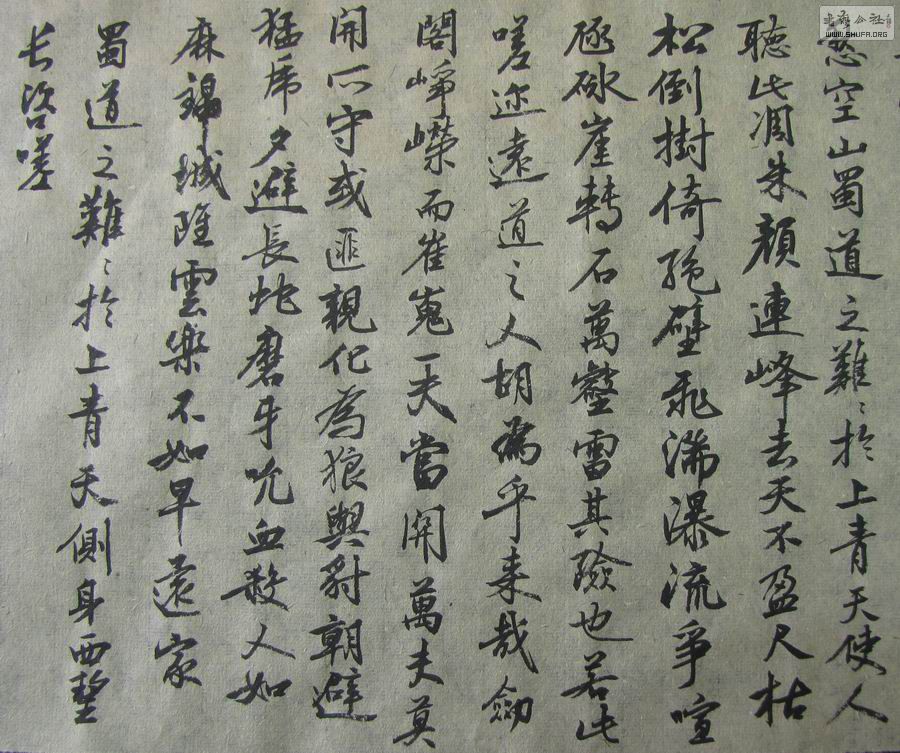 愁空山蜀道之難〻於上青天使人
聽此凋朱顏連峰去天不盈尺枯
松倒樹倚絕壁飛湍瀑流爭喧
豗砯崖轉石萬壑雷其險也若此
嗟迩遠道之人胡為乎来哉劒
閣崢嶸而崔嵬一夫當開萬夫莫
開所守或匪親化為狼與豺朝避
猛虎夕避長蛇磨牙吮血殺人如
麻錦城雖雲樂不如早還家
蜀道之難〻於上青天側身西望
长咨嗟
書法公社
WWW.SHUFA.ORG